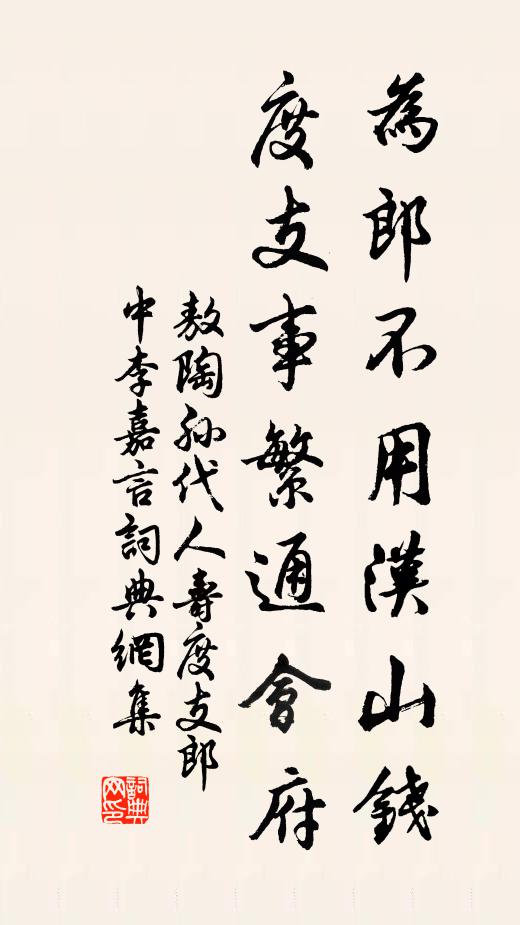 為郎不用漢山錢
度支事繁通會府
敖陶孫代人壽度支郎
中李嘉言詞典網集
詞典網印